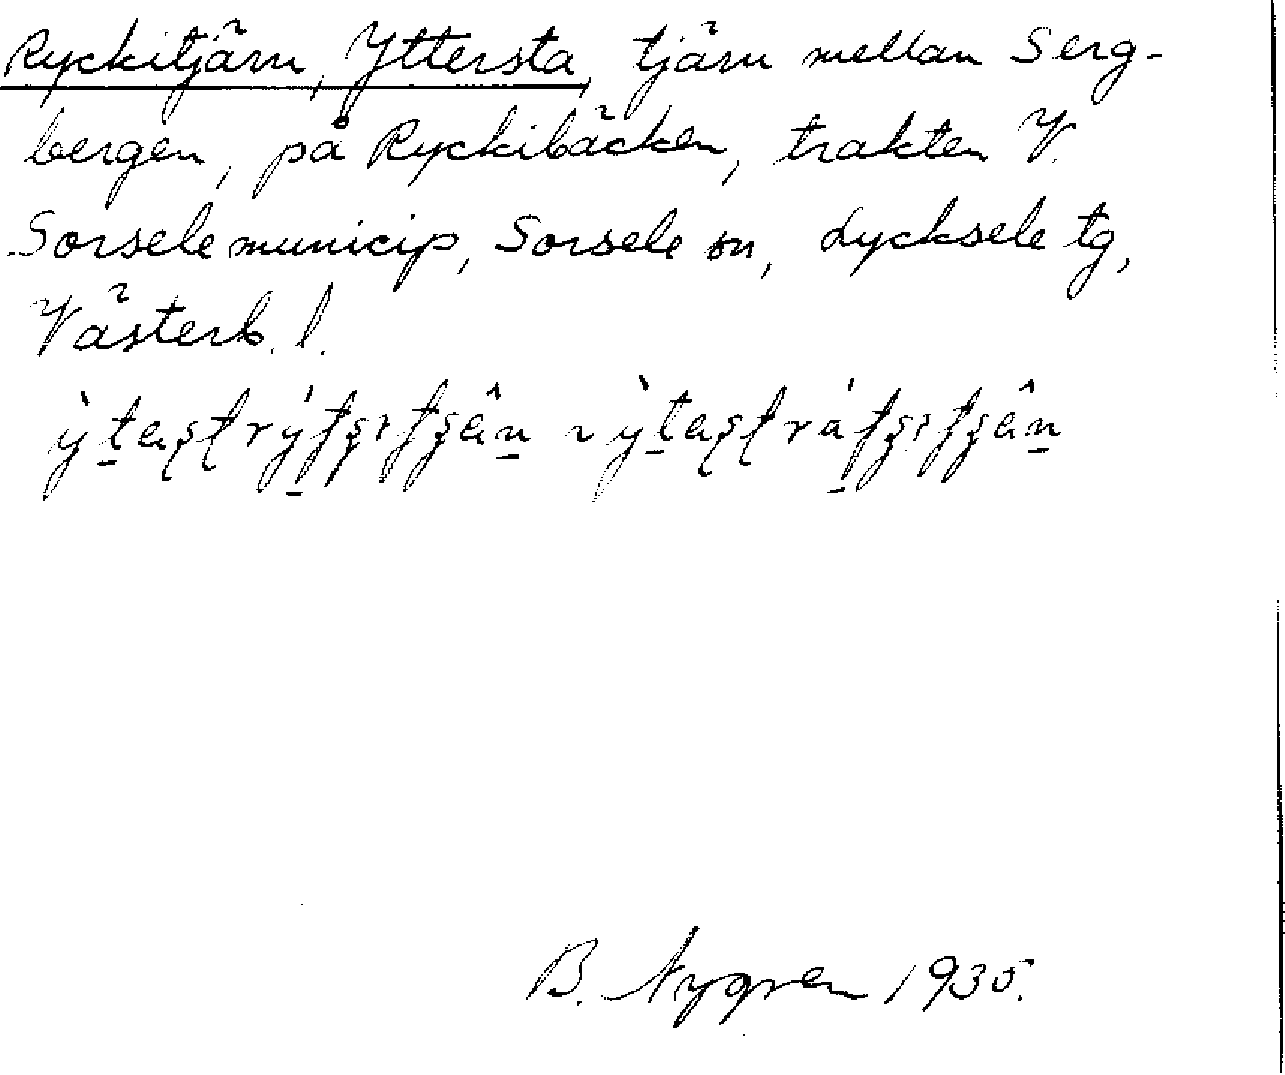 Ryckitjärn, Yttersta, tjärn mellan Serg-
bergen, på Ryckibäcken, trakten V.
Sorsele municip, Sorsele sn, Lycksele tg,
Västerb. l.
B. Nygren 1935.